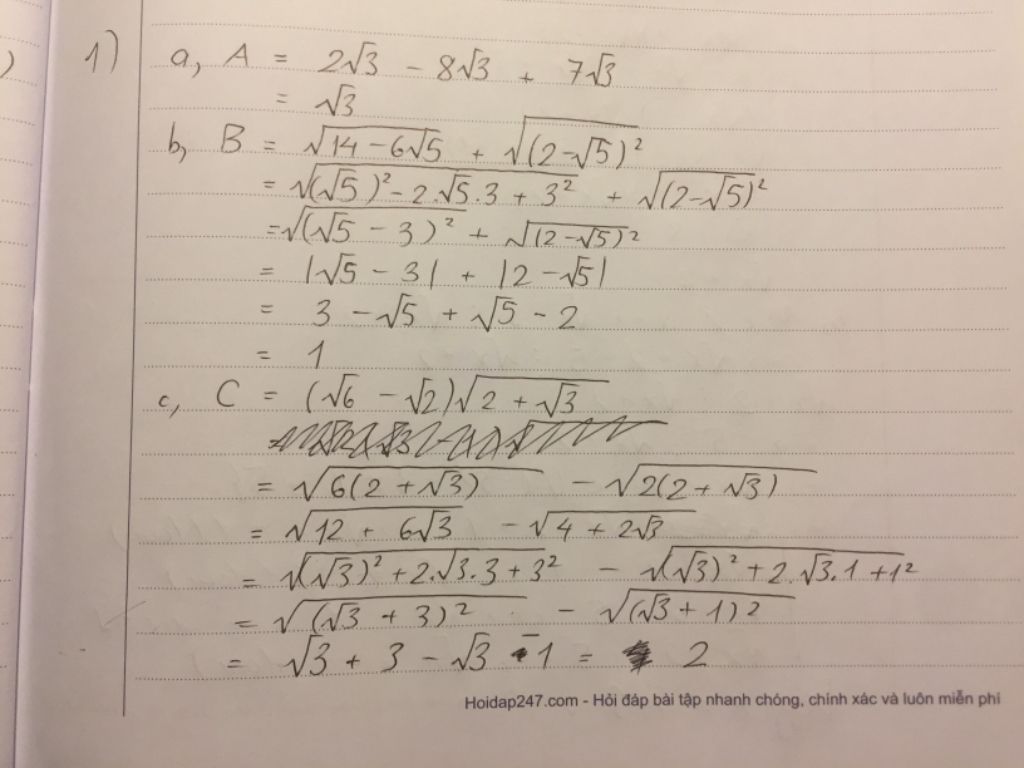 1) a, A = 2√3 - 8√3 + 7√3
= √3
b, B = √(14 - 6√5) + √((2-√5)²)
= √((√5)² - 2.√5.3 + 3²) + √((2-√5)²)
= √((√5 - 3)²) + √((2-√5)²)
= |√5 - 3| + |2 - √5|
= 3 - √5 + √5 - 2
= 1
c, C = (√6 - √2)√(2 + √3)
= √(6(2 + √3)) - √(2(2 + √3))
= √(12 + 6√3) - √(4 + 2√3)
= √((√3)² + 2.√3.3 + 3²) - √((√3)² + 2.√3.1 + 1²)
= √((√3 + 3)²) - √((√3 + 1)²)
= √3 + 3 - √3 - 1 = 2
Hoidap247.com - Hỏi đáp bài tập nhanh chóng, chính xác và luôn miễn phí